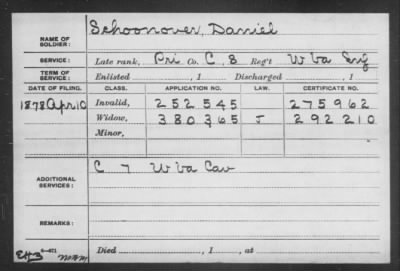 NAME OF SOLDIER: Schoonover, Daniel
SERVICE: Late rank, Pri Co. C, 8 Reg't W Va Inf
TERM OF SERVICE: Enlisted , 1 Discharged , 1
DATE OF FILING. CLASS. APPLICATION NO. LAW. CERTIFICATE NO.
1878 Apr 10 Invalid, 252545 275962
Widow, 380365 J 292210
Minor,
ADDITIONAL SERVICES: C 7 W Va Cav
REMARKS:
Died , 1 , at